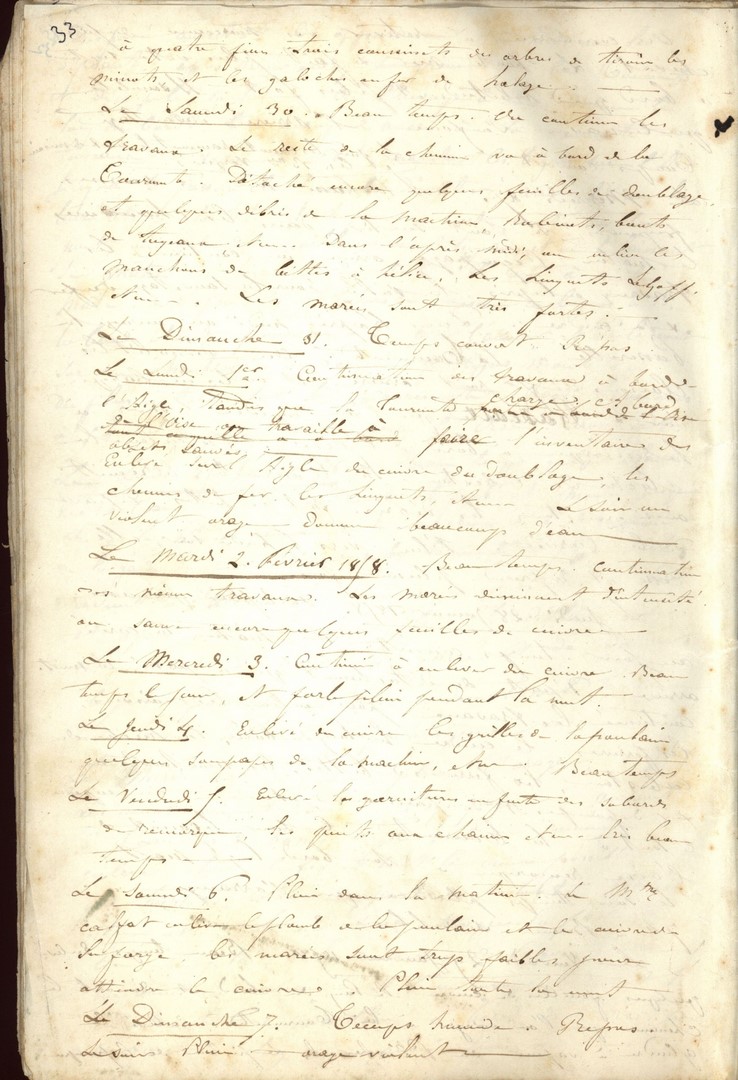 33
à quatre trois coussinets des arbres de tiroirs les
minots et les galoches en fer de halage.
Le Samedi 30. Beau temps. On continue les
travaux. Le reste de la cheminée va à bord de la
Tourmente. Détaché encore quelques feuilles de doublage,
et quelques débris de la machine, Robinets, bouts
de tuyeaux, etc. Dans l'après midi, on enlève les
manchons de bittes à hélice, Les linguets Legoff.
etc. Les marées sont très fortes.
Le Dimanche 31. Temps couvert Repos
Le Lundi 1er. Continuation des travaux à bord de
l'Aigle, Tandis que la Tourmente charge, à bord
de l'Oise on travaille à faire l'inventaire des
objets sauvés.
Enlevé sur l'Aigle du cuivre du doublage, les
chemins de fer, les linguets, etc. Le soir un
violent orage donne beaucoup d'eau
Le Mardi 2. Février 1858. Beau temps. Continuation
nos mêmes travaux. Les marées diminuent d'intensité.
on sauve encore quelques feuilles de cuivre
Le Mercredi 3. Continué à enlever du cuivre Beau
temps le jour, et forte pluie pendant la nuit.
Le Jeudi 4. Enlevé du cuivre les grilles de la poulaine
quelques soupapes de la machine, etc. Beau temps
Le Vendredi 5. Enlevé les garnitures en fonte des sabords
de remorque, les puits aux chaînes etc. très beau
temps
Le Samedi 6. Pluie dans la matinée. Le Mtre
calfat enlève le plomb de la poulaine et le cuivre de
la forge les marées sont trop faibles pour
atteindre le cuivre. Pluie toute la nuit
Le Dimanche 7. Temps humide. Repos.
Le soir Pluie orage violent